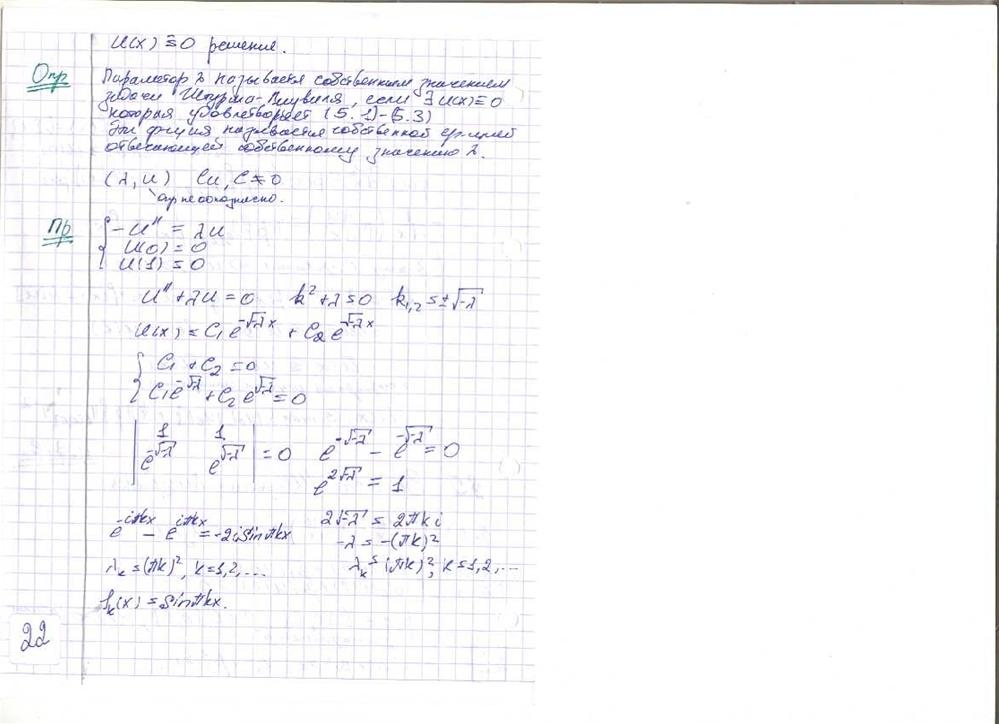 U(x) ≡ 0 решение.
Опр Параметр λ называется собственным значением
задачи Штурма-Лиувилля, если ∃ U(x) ≡ 0
которая удовлетворяет (5.1)-(5.3)
Эта функция называется собственной функцией
отвечающей собственному значению λ.
(λ, u) Cu, C ≠ 0
Пр { -U'' = λu
U(0) = 0
U(1) = 0
U'' + λu = 0 k² + λ = 0 k₁,₂ = ±√-λ
U(x) = C₁ e^{-√-λ x} + C₂ e^{√-λ x}
{ C₁ + C₂ = 0
C₁e^{-√-λ} + C₂ e^{√-λ} = 0
| 1 1 |
| e^{-√-λ} e^{√-λ} | = 0 e^{-√-λ} - e^{√-λ} = 0
e^{2√-λ} = 1
e^{-iπkx} - e^{iπkx} = -2i sin πkx 2√-λ = 2πki
-λ = -(πk)²
λₖ = (πk)², k = 1,2,... λₖ = (πk)², k = 1,2,...
fₖ(x) = sin πkx.
22